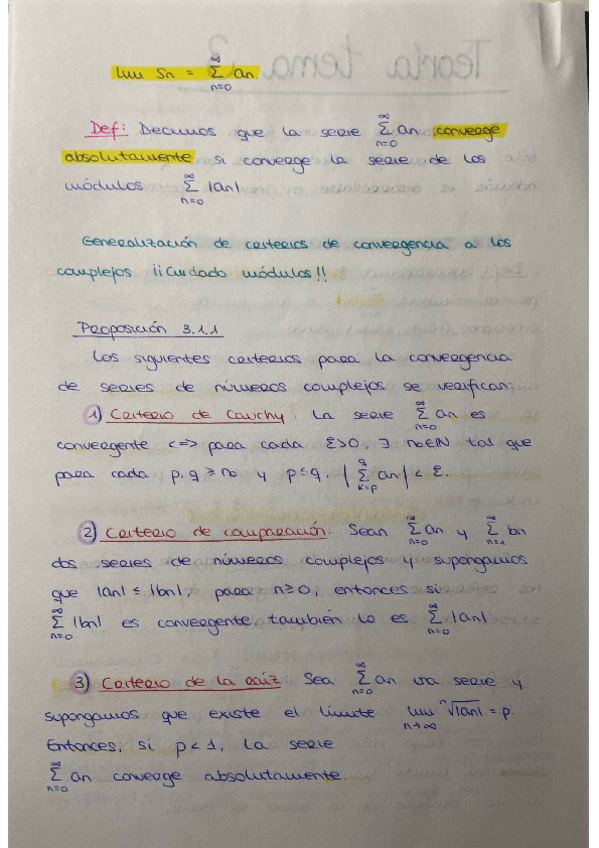 lim Sn = ∞Σn=0 an.
Def: Decimos que la serie ∞Σn=0 an converge
absolutamente si converge la serie de los
módulos ∞Σn=0 |an|
Generalización de criterios de convergencia a los
complejos ¡¡Cuidado módulos!!
Proposición 3.1.1
Los siguientes criterios para la convergencia
de series de números complejos se verifican:
1) Criterio de Cauchy: La serie ∞Σn=0 an es
convergente <=> para cada ε>0, ∃ n0∈ℕ tal que
para cada p, q ≥ n0 y p≤q, |qΣk=p an| < ε.
2) Criterio de comparación: Sean ∞Σn=0 an y ∞Σn=1 bn
dos series de números complejos y supongamos
que |an| ≤ |bn|, para n≥0, entonces si
∞Σn=0 |bn| es convergente, también lo es ∞Σn=0 |an|
3) Criterio de la raíz Sea ∞Σn=0 an una serie y
supongamos que existe el límite lim n→∞ ⁿ√|an| = p.
Entonces, si p < 1, la serie
∞Σn=0 an converge absolutamente.